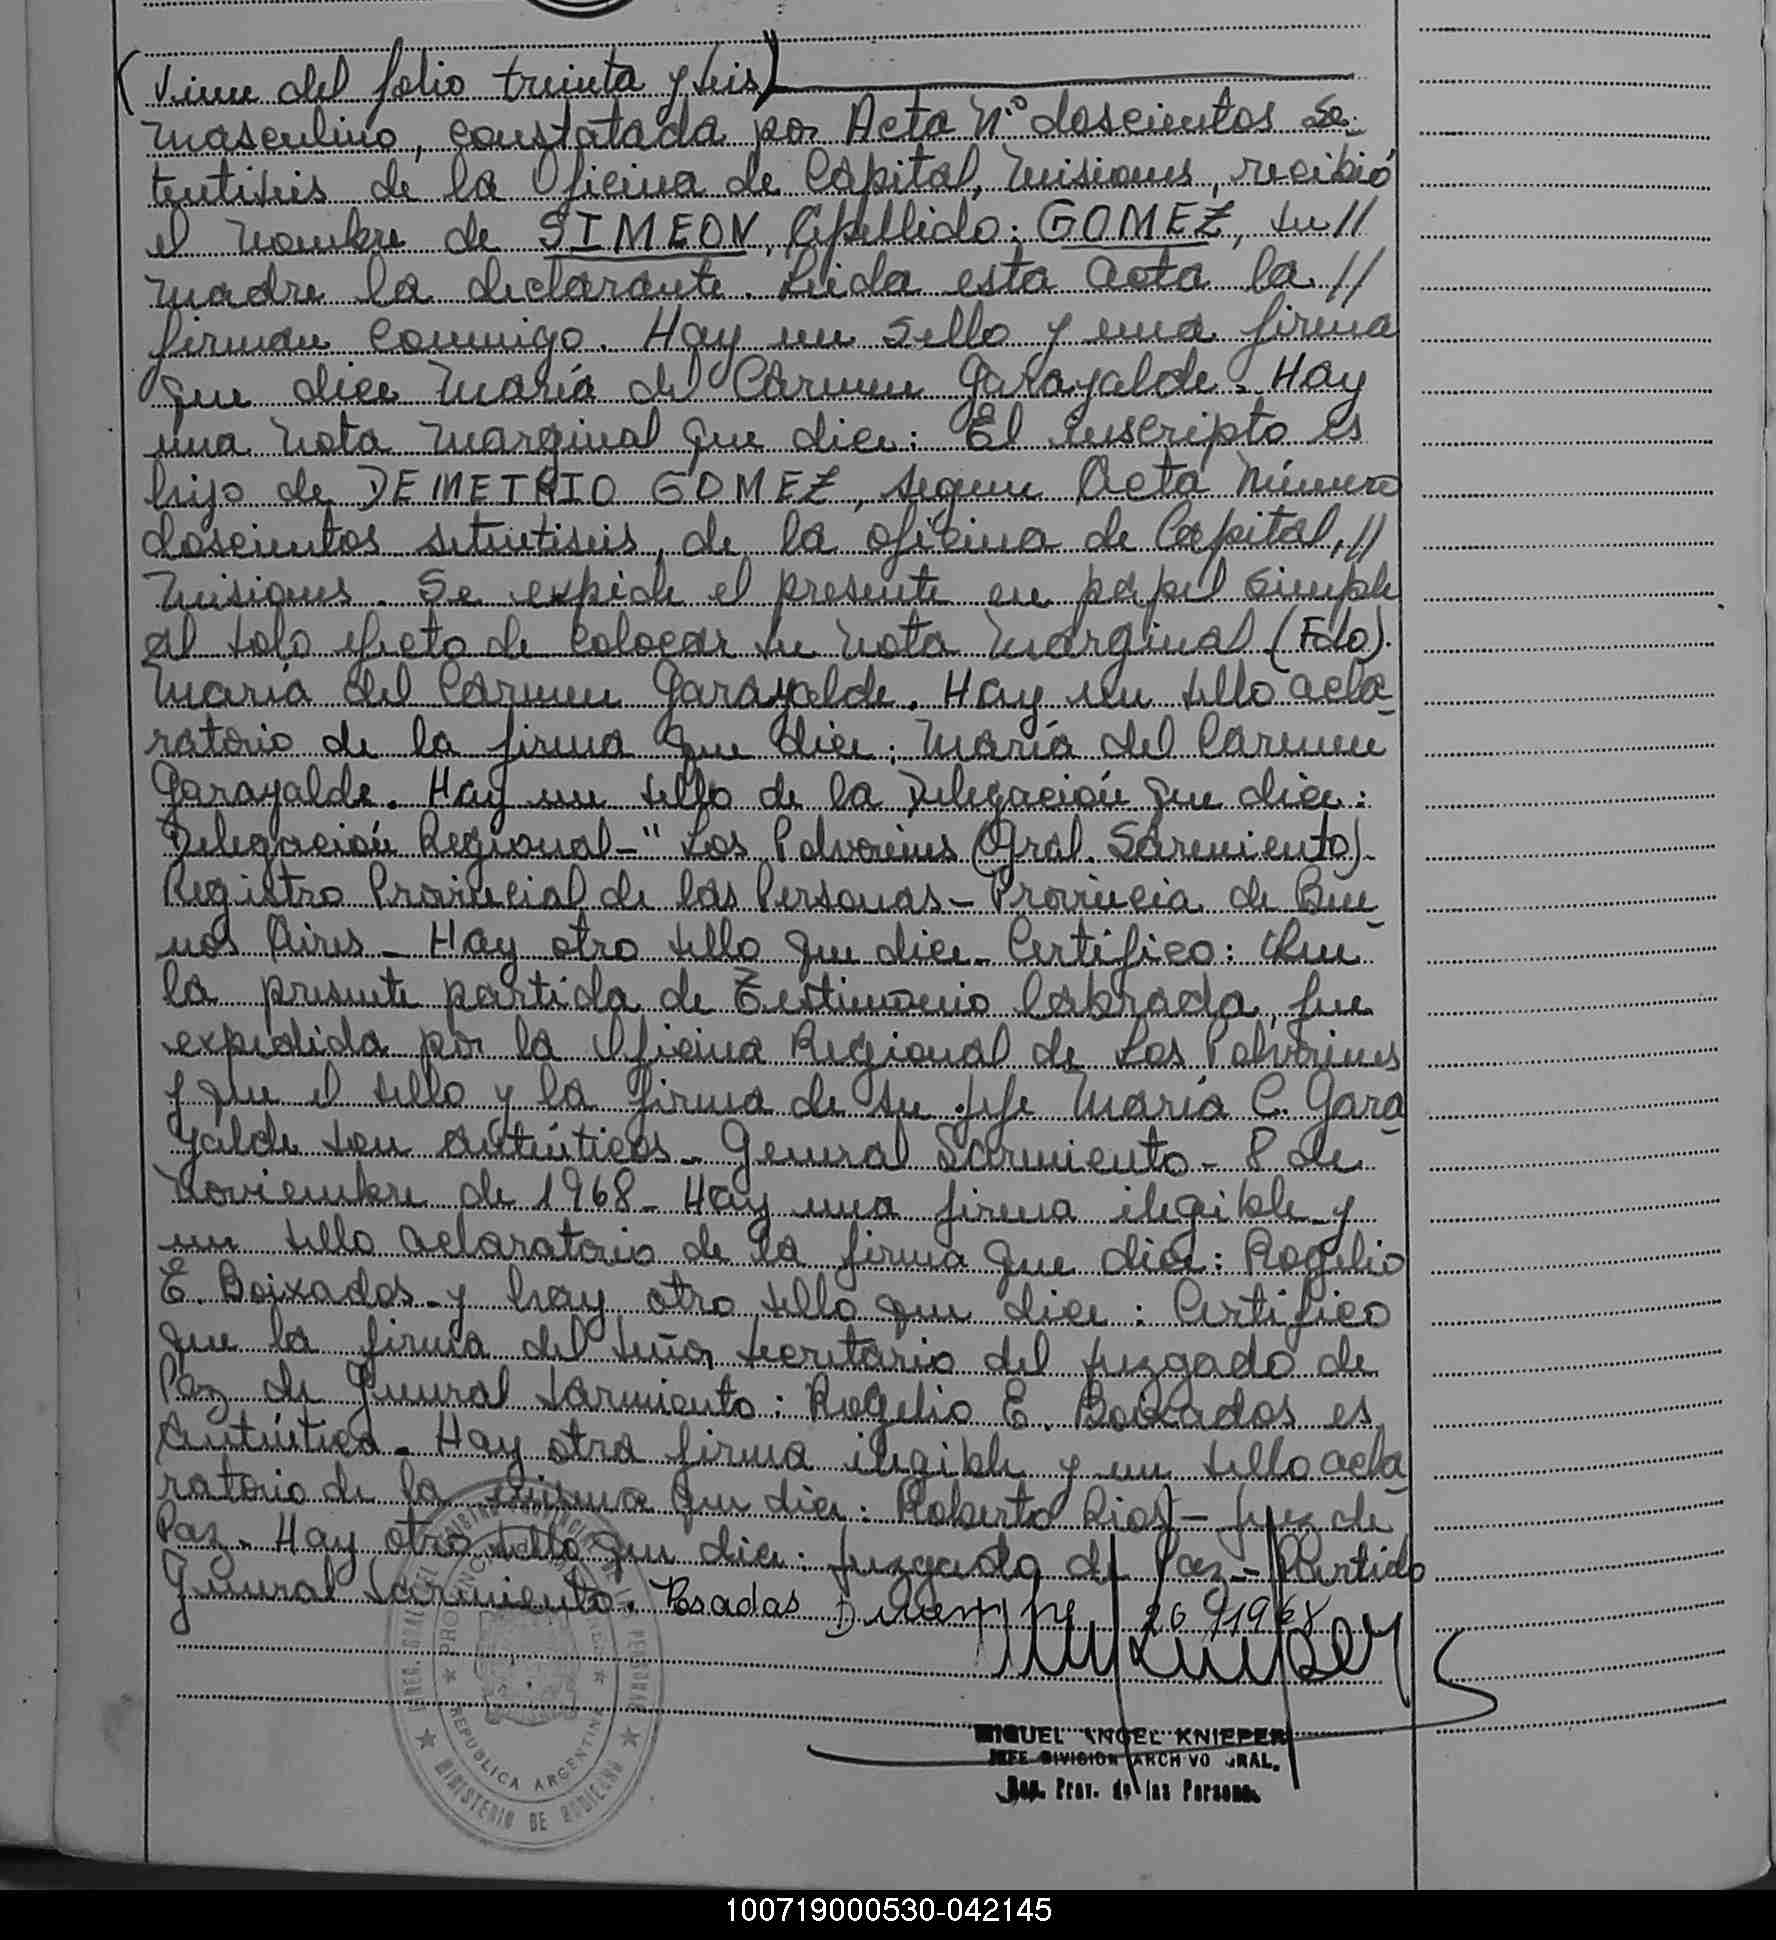 (Viene del folio treinta y seis)
masculino, constatada por Acta Nº doscientos se-
tentiseis de la Oficina de Capital, Misiones, recibió
el nombre de SIMEON, Apellido: GOMEZ, su //
madre la declarante. Leida esta acta la //
firman conmigo. Hay un sello y una firma
que dice María del Carmen Garayalde. Hay
una nota marginal que dice: El inscripto es
hijo de DEMETRIO GOMEZ, segun Acta número
doscientos setentiseis, de la oficina de Capital, //
Misiones. Se expide el presente en papel simple
al solo efecto de colocar su nota marginal (Fdo).
María del Carmen Garayalde. Hay un sello acla-
ratorio de la firma que dice: María del Carmen
Garayalde. Hay un sello de la Delegación que dice:
Delegación Regional-" Los Polvorines (Gral. Sarmiento).
Registro Provincial de las Personas - Provincia de Bue-
nos Aires - Hay otro sello que dice - Certifico: Que
la presente partida de Testimonio labrada, fue
expedida por la Oficina Regional de Los Polvorines
y que el sello y la firma de su jefe María C. Gara-
yalde son auténticos - General Sarmiento - 8 de
Noviembre de 1968 - Hay una firma ilegible y
un sello aclaratorio de la firma que dice: Rogelio
E. Boixados - y hay otro sello que dice: Certifico
que la firma del señor secretario del juzgado de
Paz de General Sarmiento: Rogelio E. Boixados es
auténtica. Hay otra firma ilegible y un sello acla-
ratorio de la misma que dice: Roberto Rios - Juez de
Paz. Hay otro sello que dice: Juzgado de Paz - Partido
General Sarmiento. Posadas Diciembre 26/1968
MIGUEL ANGEL KNIEPER
JEFE DIVISION ARCHIVO GRAL.
Reg. Prov. de las Personas
PROVINCIAL DE LAS PERSONAS
MINISTERIO DE GOBIERNO
REPUBLICA ARGENTINA
100719000530-042145